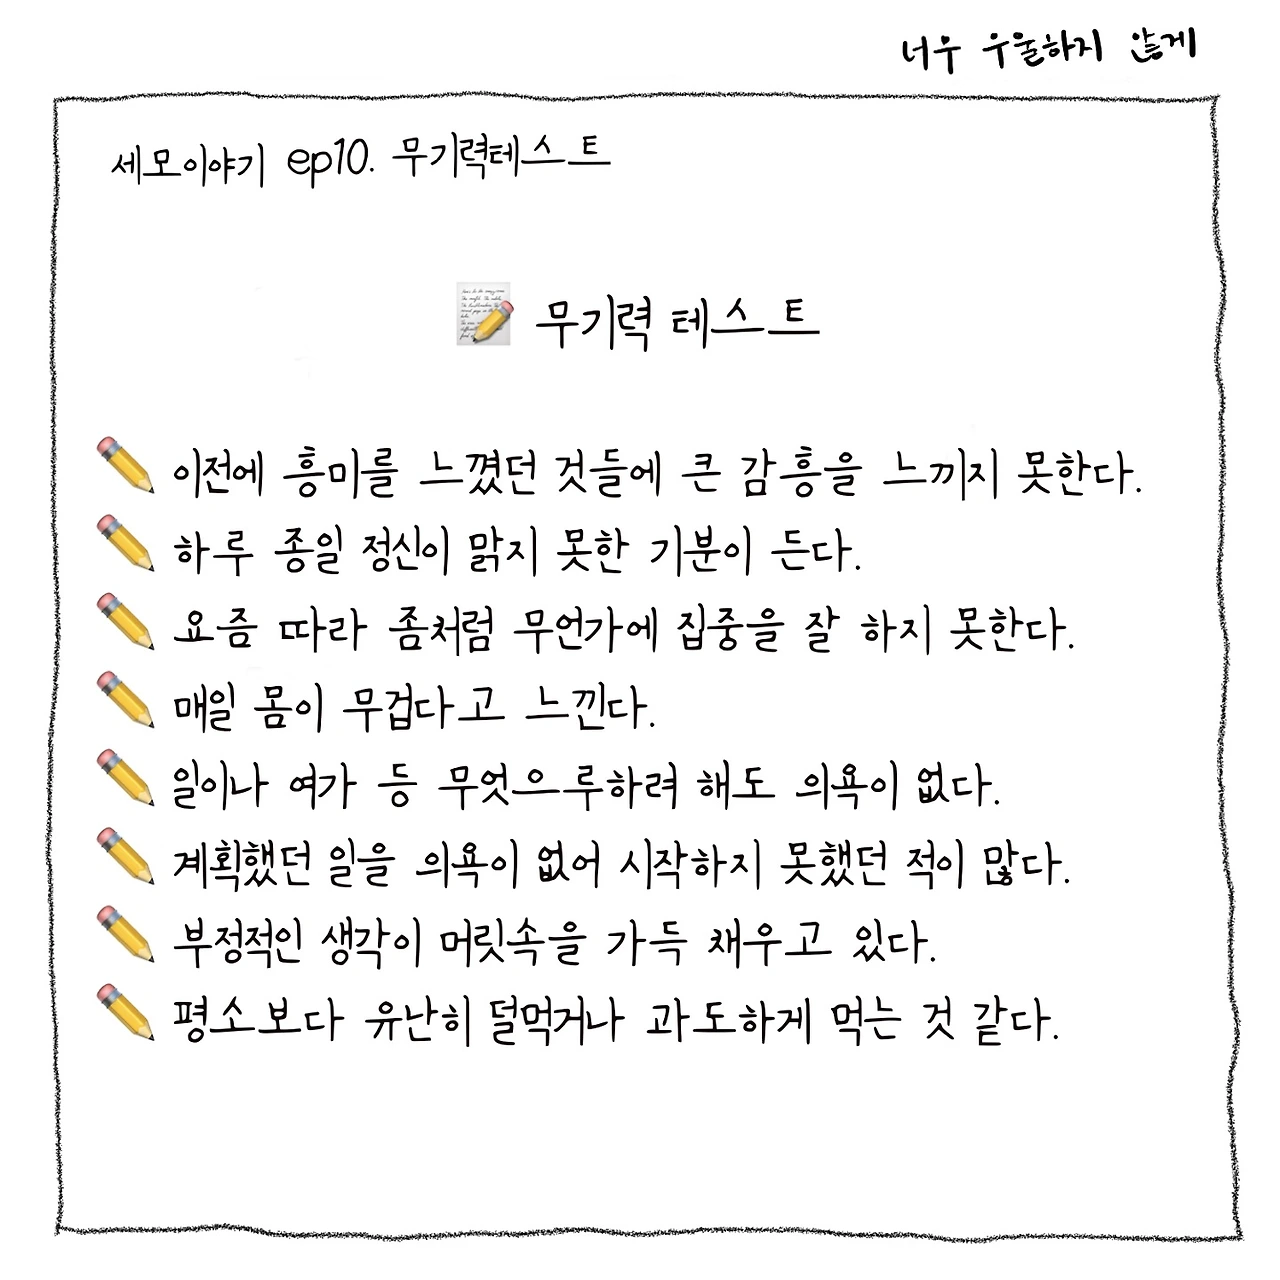 너우 우울하지 않게
세모이야기 ep10. 무기력테스트
무기력 테스트
이전에 흥미를 느꼈던 것들에 큰 감흥을 느끼지 못한다.
하루 종일 정신이 맑지 못한 기분이 든다.
요즘 따라 좀처럼 무언가에 집중을 잘 하지 못한다.
매일 몸이 무겁다고 느낀다.
일이나 여가 등 무엇으루하려 해도 의욕이 없다.
계획했던 일을 의욕이 없어 시작하지 못했던 적이 많다.
부정적인 생각이 머릿속을 가득 채우고 있다.
평소보다 유난히 덜먹거나 과도하게 먹는 것 같다.